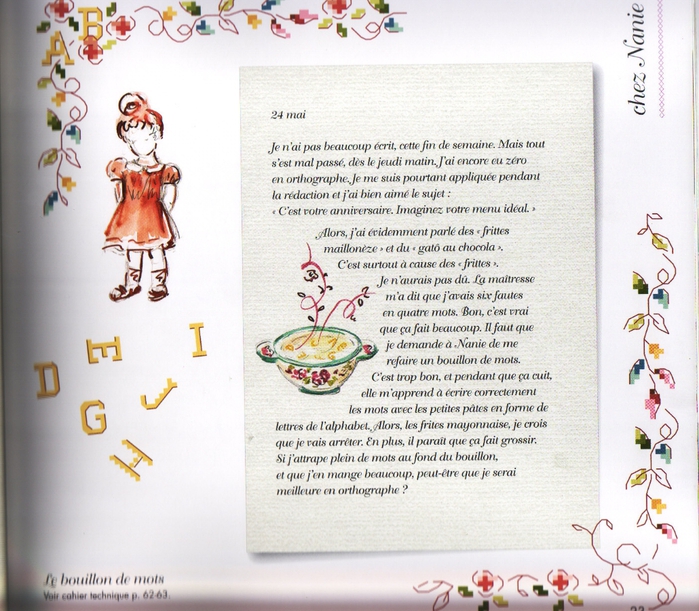 A B
chez Nanie
24 mai
Je n'ai pas beaucoup écrit, cette fin de semaine. Mais tout
s'est mal passé, dès le jeudi matin. J'ai encore eu zéro
en orthographe. Je me suis pourtant appliquée pendant
la rédaction et j'ai bien aimé le sujet :
« C'est votre anniversaire. Imaginez votre menu idéal. »
Alors, j'ai évidemment parlé des « frittes
maillonèze » et du « gatô au chocola ».
C'est surtout à cause des « frittes ».
Je n'aurais pas dû. La maîtresse
m'a dit que j'avais six fautes
en quatre mots. Bon, c'est vrai
que ça fait beaucoup. Il faut que
je demande à Nanie de me
refaire un bouillon de mots.
C'est trop bon, et pendant que ça cuit,
elle m'apprend à écrire correctement
les mots avec les petites pâtes en forme de
lettres de l'alphabet. Alors, les frites mayonnaise, je crois
que je vais arrêter. En plus, il paraît que ça fait grossir.
Si j'attrape plein de mots au fond du bouillon,
et que j'en mange beaucoup, peut-être que je serai
meilleure en orthographe ?
D E I
G J
H
Le bouillon de mots
Voir cahier technique p. 62-63.